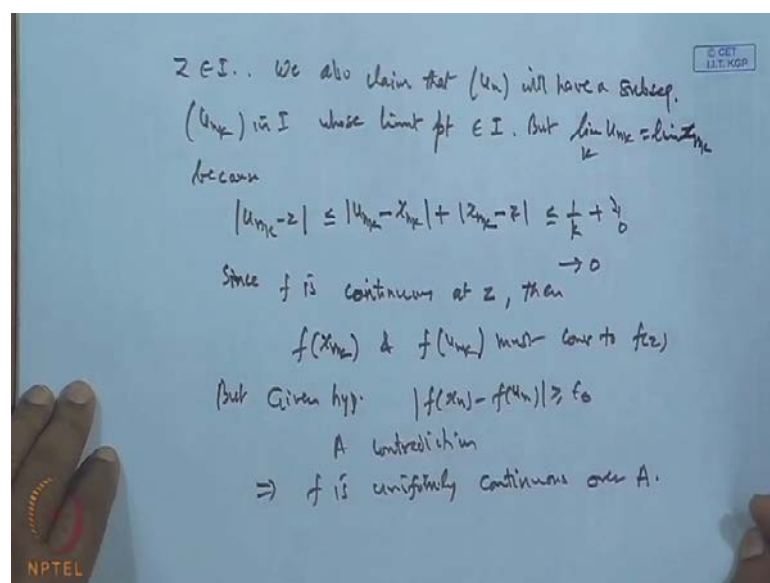 z ∈ I.. We also claim that (un) will have a subseq.
© CET
I.I.T. KGP
(u_{n_k}) in I whose limit pt ∈ I. But lim_k u_{n_k} = lim x_{n_k}
because
|u_{n_k} - z| ≤ |u_{n_k} - x_{n_k}| + |x_{n_k} - z| ≤ 1/k + ↓0
→ 0
Since f is continuous at z, then
f(x_{n_k}) & f(u_{n_k}) must conv to f(z)
But Given hyp. |f(xn) - f(un)| ≥ ε0
A contradiction
⇒ f is uniformly continuous over A.
NPTEL